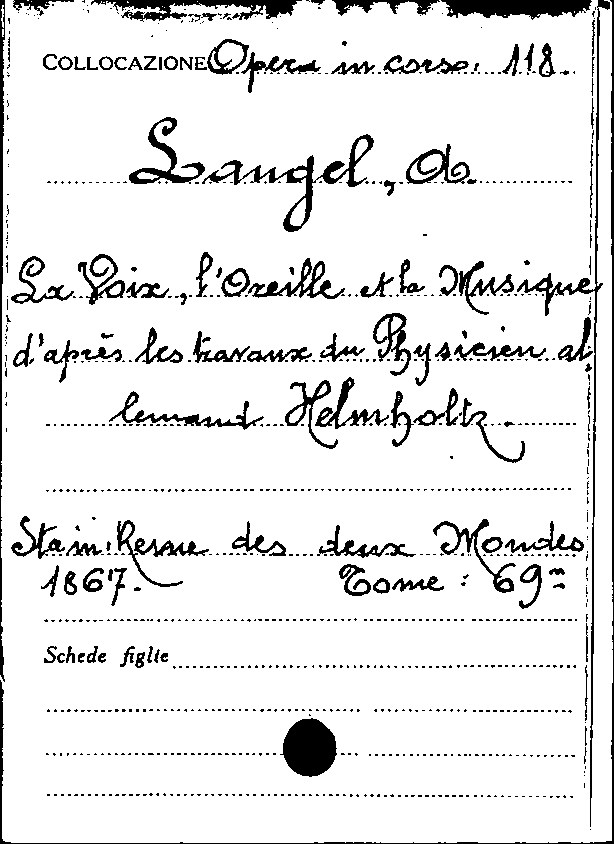 COLLOCAZIONE Opera in corso. 118.
Laugel, A.
La Voix, l'Oreille et la Musique
d'après les travaux du Physicien al
lemand Helmholtz.
Sta in: Revue des deux Mondes
1867. Tome: 69m
Schede figlie